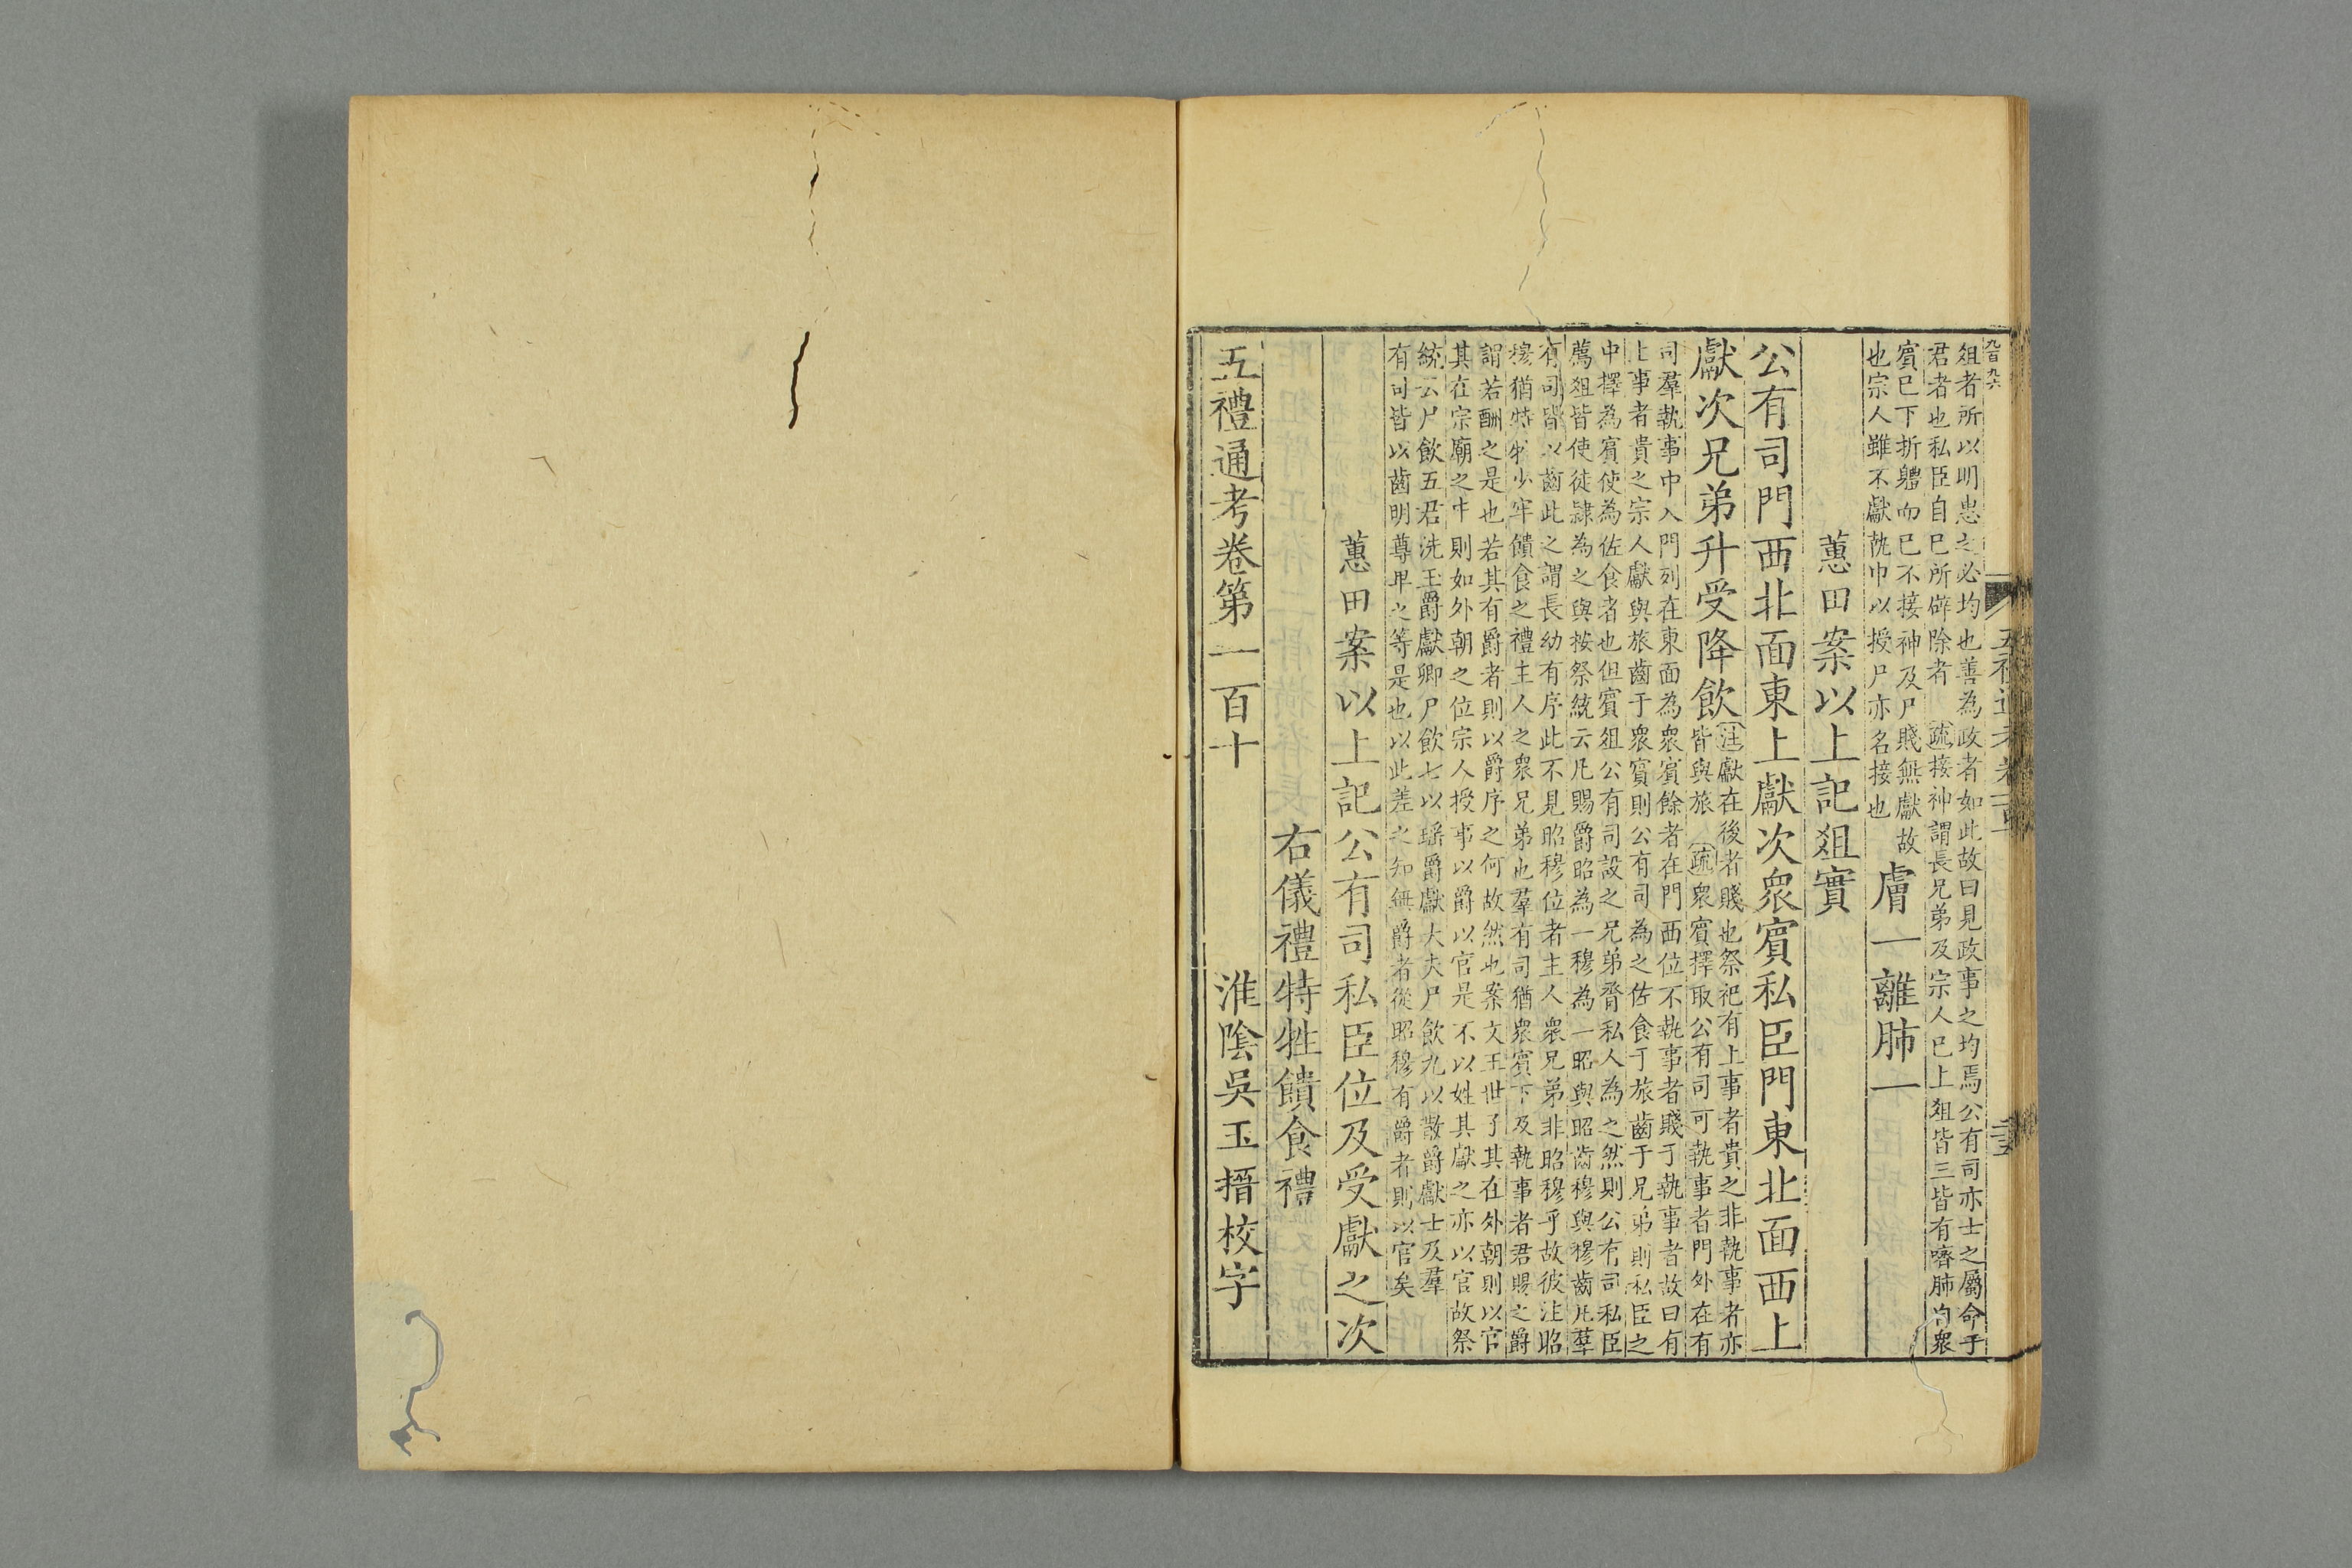 九百九六
俎者所以明惠之必均也善為政者如此故曰見政事之均焉公有司亦士之屬命于
君者也私臣自已所辟除者 疏接神謂長兄弟及宗人已上俎皆三皆有嚌肺均衆
賓已下折體而已不接神及尸賤無獻故
也宗人雖不獻執巾以授尸亦名接也
膚一離肺一
蕙田案以上記俎實
公有司門西北面東上獻次衆賓私臣門東北面西上
獻次兄弟升受降飲
注獻在後者賤也祭祀有上事者貴之非執事者亦
皆與旅 疏衆賓擇取公有司可執事者門外在有
司羣執事中入門列在東面為衆賓餘者在門西位不執事者賤于執事者故曰有
上事者貴之宗人獻與旅齒于衆賓則公有司為之佐食于旅齒于兄弟則私臣之
中擇為賓使為佐食者也但賓俎公有司設之兄弟胥私人為之然則公有司私臣
薦俎皆使徒隸為之與按祭統云凡賜爵昭為一穆為一昭與昭齒穆與穆齒凡羣
有司皆以齒此之謂長幼有序此不見昭穆位者主人衆兄弟非昭穆乎故彼注昭
穆猶特牲少牢饋食之禮主人之衆兄弟也羣有司猶衆賓下及執事者君賜之爵
謂若酬之是也若其有爵者則以爵序之何故然也案文王世子其在外朝則以官
其在宗廟之中則如外朝之位宗人授事以爵以官是不以姓其獻之亦以官故祭
統云尸飲五君洗玉爵獻卿尸飲七以瑶爵獻大夫尸飲九以散爵獻士及羣
有司皆以齒明尊卑之等是也以此差之知無爵者從昭穆有爵者則以官矣
蕙田案以上記公有司私臣位及受獻之次
右儀禮特牲饋食禮
五禮通考卷第一百十
淮陰吳玉搢校字